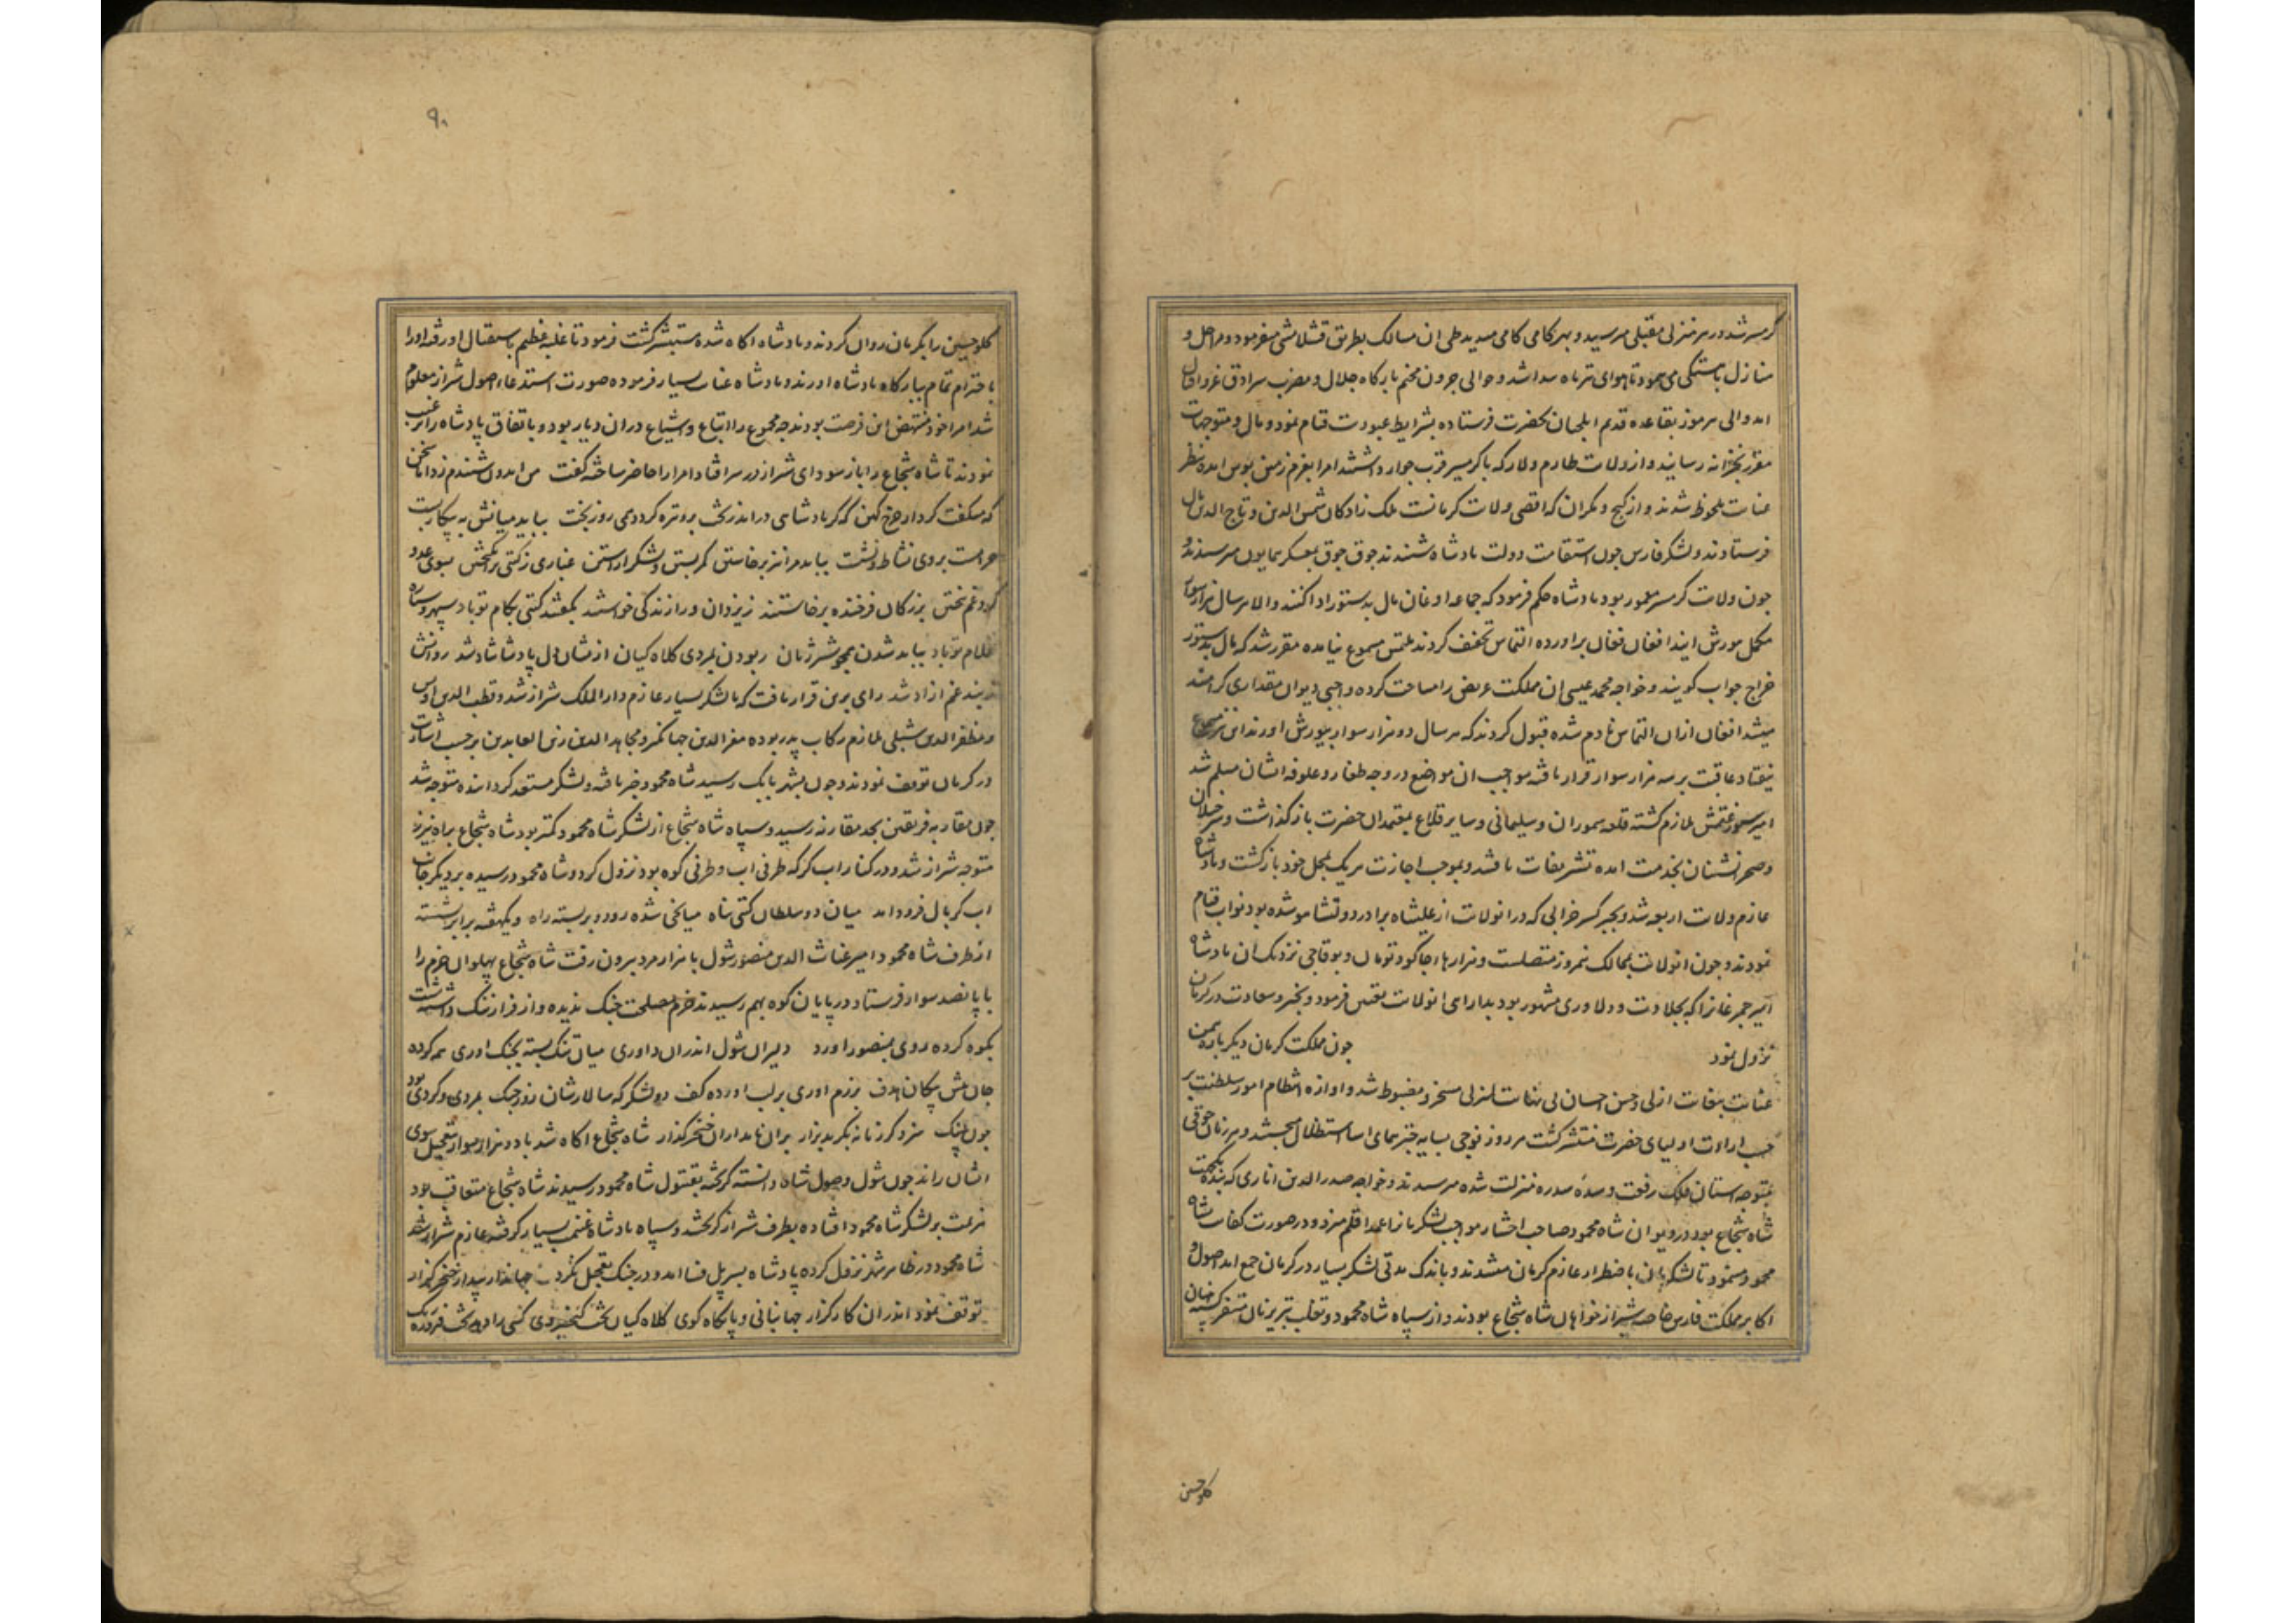 کرمسیر شد در هر منزلی مقبلی میرسید و بهر کامی کامی میدید طی ان مسالک بطریق قشلامشی میفرمود و مراحل و
منازل باهستکی می پیمود تا هوای تیرماه پیدا شد و حوالی جرون مخیم بارکاه جلال و مضرب سرادق عز و اقبال
امد والی هرموز بقاعده قدیم ایلچیان بحضرت فرستاده بشرایط عبودیت قیام نمود و مال و متوجهات
مقرر بخزانه رسانید و از ولایت طارم و لار که با کرمسیر قرب جوار داشتند امرا بعزم زمین بوس امده بنظر
عنایت ملحوظ شدند و از کیج و مکران که اقصی ولایت کرمانست ملک زادکان شمس الدین و تاج الدین مال
فرستادند و لشکر فارس چون استقامت دولت پادشاه شنیدند جوق جوق بمعسکر همایون میرسیدند و
چون ولایت کرمسیر معمور بود پادشاه حکم فرمود که جماعه اوغان مال بدستور ادا کنند والا هر سال هزار سوار
مکمل بیورش ایند افغان فغان براورده التماس تخفیف کردند ملتمس مسموع نیامده مقرر شد که مال بدستور
خراج جواب کویند و خواجه محمد عیسی ان مملکت عریض را مساحت کرده واجبی دیوان مقداری کرامند
میشد افغان ازان التماس نادم شده قبول کردند که هر سال دو هزار سوار بیورش اورند این نیز مسموع
نیفتاد عاقبت بر سه هزار سوار قرار یافته مواجب ان مواضع در وجه طغار و علوفه ایشان مسلم شد
امیر سیورغتمش ملازم کشته قلعه سموران و سلیمانی و سایر قلاع بمعتمدان حضرت باز کذاشت و سرخیلان
و صحرانشینان بخدمت امده تشریفات یافتند و بموجب اجازت هریک بمحل خود بازکشت و پادشاه
عازم ولایت اربعه شد و بجبر کسر خرابی که در انولایت از علیشاه برادر دولتشاه شده بود نواب قیام
نمودند و چون انولایت بممالک نیمروز متصلست و هزارهاء جاکو و تومان و بوقاجی نزدیک ان پادشاه
امیر حمر غانرا که بجلادت و دلاوری مشهور بود بدارایی انولایت تعیین فرمود و بخیر و سعادت در کرمان
نزول نمود چون مملکت کرمان دیکر باره بیمن
عنایت بیغایت ازلی و حسن احسان بی نهایت لم یزلی مسخر و مضبوط شد و اوازه انتظام امور سلطنت بر
حسب ارادت اولیای حضرت منتشر کشت هر روز فوجی بسایه چتر همای اسا استظلال میجستند و هر زمان جوقی
متوجه استان فلک رفعت و سده سدره منزلت شده میرسیدند و خواجه صدر الدین اناری که نیکبخت
شاه شجاع بود در دیوان شاه محمود صاحب اختیار مواجب لشکریانرا عمدا قلم میزد و در صورت کفایت شاه
محمود مینمود تا لشکریان باضطرار عازم کرمان میشدند و باندک مدتی لشکر بسیار در کرمان جمع امد اصول و
اکابر مملکت فارس خاصه شیراز خواهان شاه شجاع بودند و از سپاه شاه محمود و تغلب تبریزیان متنفر کشته
کلو حسن
۹۰
کلو حسین را بکرمان روان کردند و پادشاه اکاه شده مستبشر کشت فرمود تا غلبه عظیم باستقبال او رفته او را
باحترام تمام ببارکاه پادشاه اوردند و پادشاه عنایت بسیار فرموده صورت استدعاء اصول شیراز معلوم
شد امرا خود منتهض این فرصت بودند چه مجموع را اتباع و اشیاع دران دیار بود و باتفاق پادشاه را ترغیب
نمودند تا شاه شجاع را باز سودای شیراز در سر افتاد امرا را حاضر ساخته کفت من ایدون شنیدم ز دانا سخن
که میکفت کردار چرخ کهن که کر پادشاهی دراید ز تخت برو تیره کردد همی روز بخت بباید میانش به پیکار بست
حرامست بروی نشاط و نشست بباید مرا نیز برخاستن کمر بستن و لشکر اراستن غباری ز کیتی برانکیختن بسوی عدو
کرد غم بیختن بزرکان فرخنده برخاستند ز یزدان ورا زندکی خواستند بکفتند کیتی بکام تو باد سپهر و ستاره
غلام تو باد بباید شدن همچو شیر ژیان ربودن بمردی کلاه کیان ازیشان دل پادشا شاد شد روانش
ز بند غم ازاد شد رای برین قرار یافت که با لشکر بسیار عازم دار الملک شیراز شد و قطب الدین اویس
و مظفر الدین شبلی ملازم رکاب پدر بوده معز الدین جهانکیر و مجاهد الدین زین العابدین برحسب اشارت
در کرمان توقف نمودند و چون بشهر بابک رسید شاه محمود خبر یافته و لشکر مستعد کردانیده متوجه شد
چون مقاربه فریقین بحد مقارنه رسید و سپاه شاه شجاع از لشکر شاه محمود کمتر بود شاه شجاع براه نیریز
متوجه شیراز شد و در کنار اب کر که طرفی اب و طرفی کوه بود نزول کرد و شاه محمود رسیده بر دیکر جانب
اب کربال فرود امد میان دو سلطان کیتی پناه میانجی شده رود و بربسته راه دو یکهفته برابر نشسته
از طرف شاه محمود امیر غیاث الدین منصور شول با هزار مرد بیرون رفت شاه شجاع پهلوان خرم را
با پانصد سوار فرستاد در پایان کوه بهم رسیدند خرم مصلحت جنک ندیده و از فرار ننک داشت پشت
بکوه کرده روی بمنصور اورد دلیران شول اندران داوری میان تنک بسته بجنک اوری همه کرده
جان پیش پیکان هدف برزم اوری بر لب اورده کف دو لشکر که سالارشان روز جنک بمردی و کردی بود
چون پلنک سزد کرز نازنکر بدیزار بران نامداران خنجر کذار شاه شجاع اکاه شد با دو هزار سوار بتعجیل سوی
ایشان راند چون شول وصول شاه دانسته کریخته بقتول شاه محمود رسیدند شاه شجاع متعاقب بود
هزیمت بر لشکر شاه محمود افتاده بطرف شیراز کریختند و سپاه پادشاه غنیمت بسیار کرفته عازم شیراز شد
شاه محمود در ظاهر شهر نزول کرده پادشاه بسر پل فسا امد و در جنک تعجیل نکرد جهاندار بیدار خنجر کذار
توقف نمود اندران کارزار جهانبانی و پایکاه کوی کلاه کیان تخت کیخسروی کسی را دهد بخت فیروز